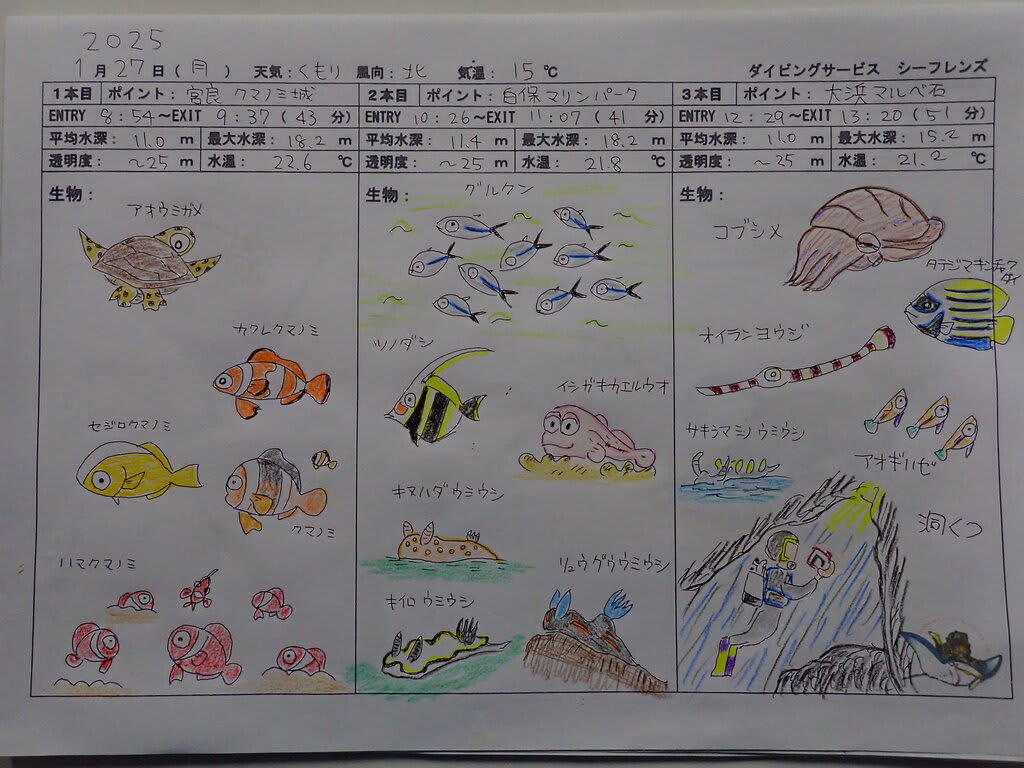 2025
1月27日(月) 天気:くもり 風向:北 気温:15℃ ダイビングサービス シーフレンズ
1本目 ポイント:宮良 クマノミ城
ENTRY 8:54~EXIT 9:37(43 分)
平均水深: 11.0 m 最大水深: 18.2 m
透明度: ~25 m 水温: 22.6 ℃
生物:
アオウミガメ
カクレクマノミ
セジロクマノミ
クマノミ
ハマクマノミ
2本目 ポイント:白保マリンパーク
ENTRY 10:26~EXIT 11:07(41 分)
平均水深: 11.4 m 最大水深: 18.2 m
透明度: ~25 m 水温: 21.8 ℃
生物:
グルクン
ツノダシ
イシガキカエルウオ
キヌハダウミウシ
リュウグウウミウシ
キイロウミウシ
3本目 ポイント: 大浜マルベ石
ENTRY 12:29~EXIT 13:20(51 分)
平均水深: 11.0 m 最大水深: 15.2 m
透明度: ~25 m 水温: 21.2 ℃
生物:
コブシメ
タテジマキンチャク
ダイ
オイランヨウジ
サキシマミノウミウシ
アオギハゼ
洞くつ